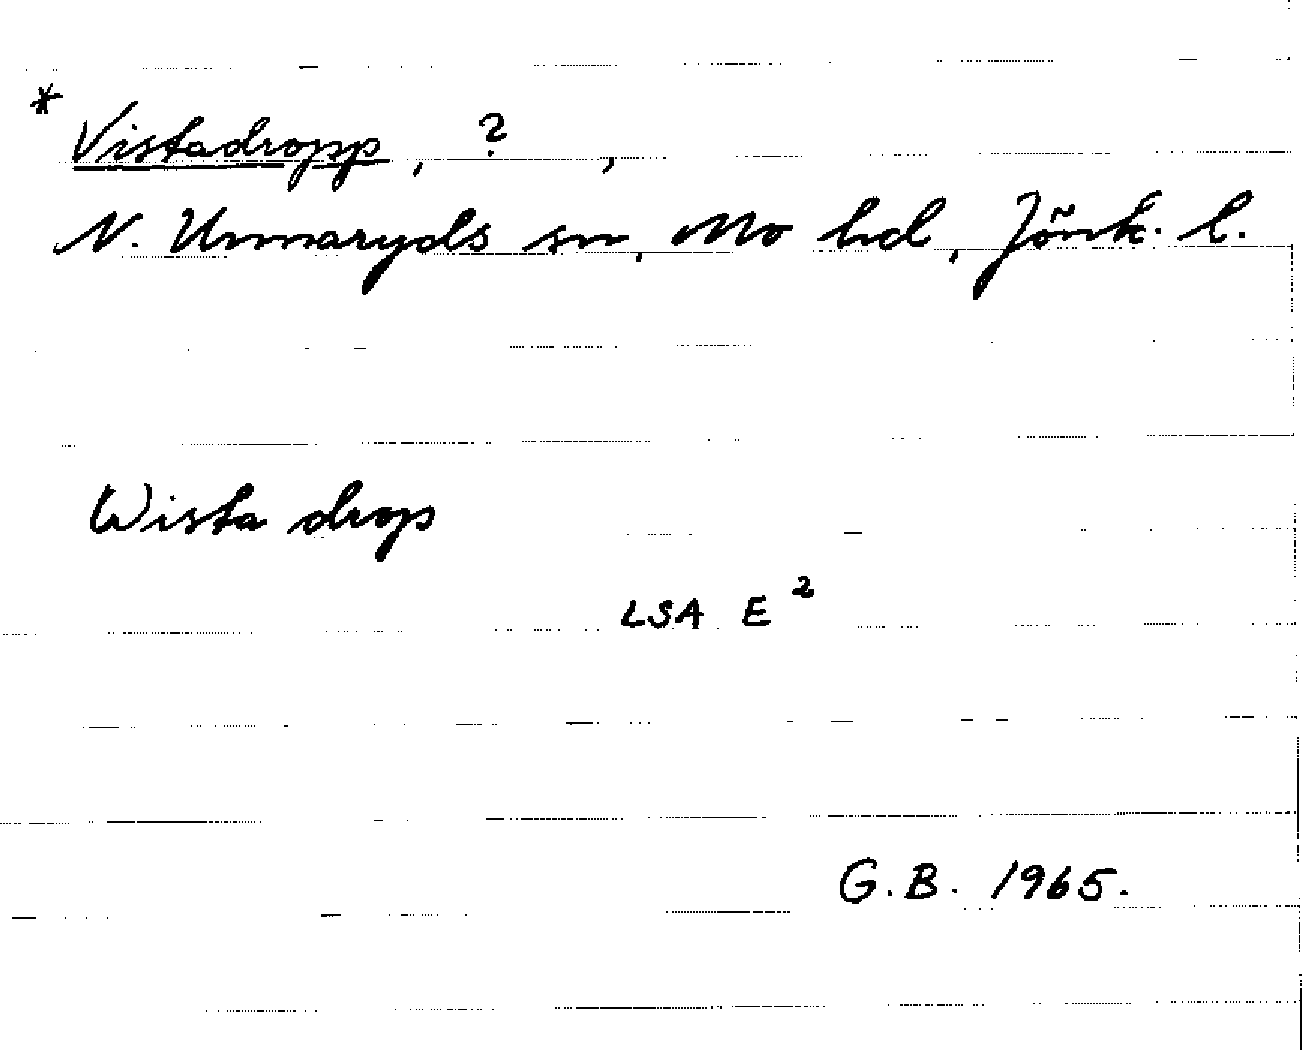 * Vistadropp, ?,
N. Unnaryds sn, Mo hd, Jönk. l.
Wista drop
LSA E²
G.B. 1965.